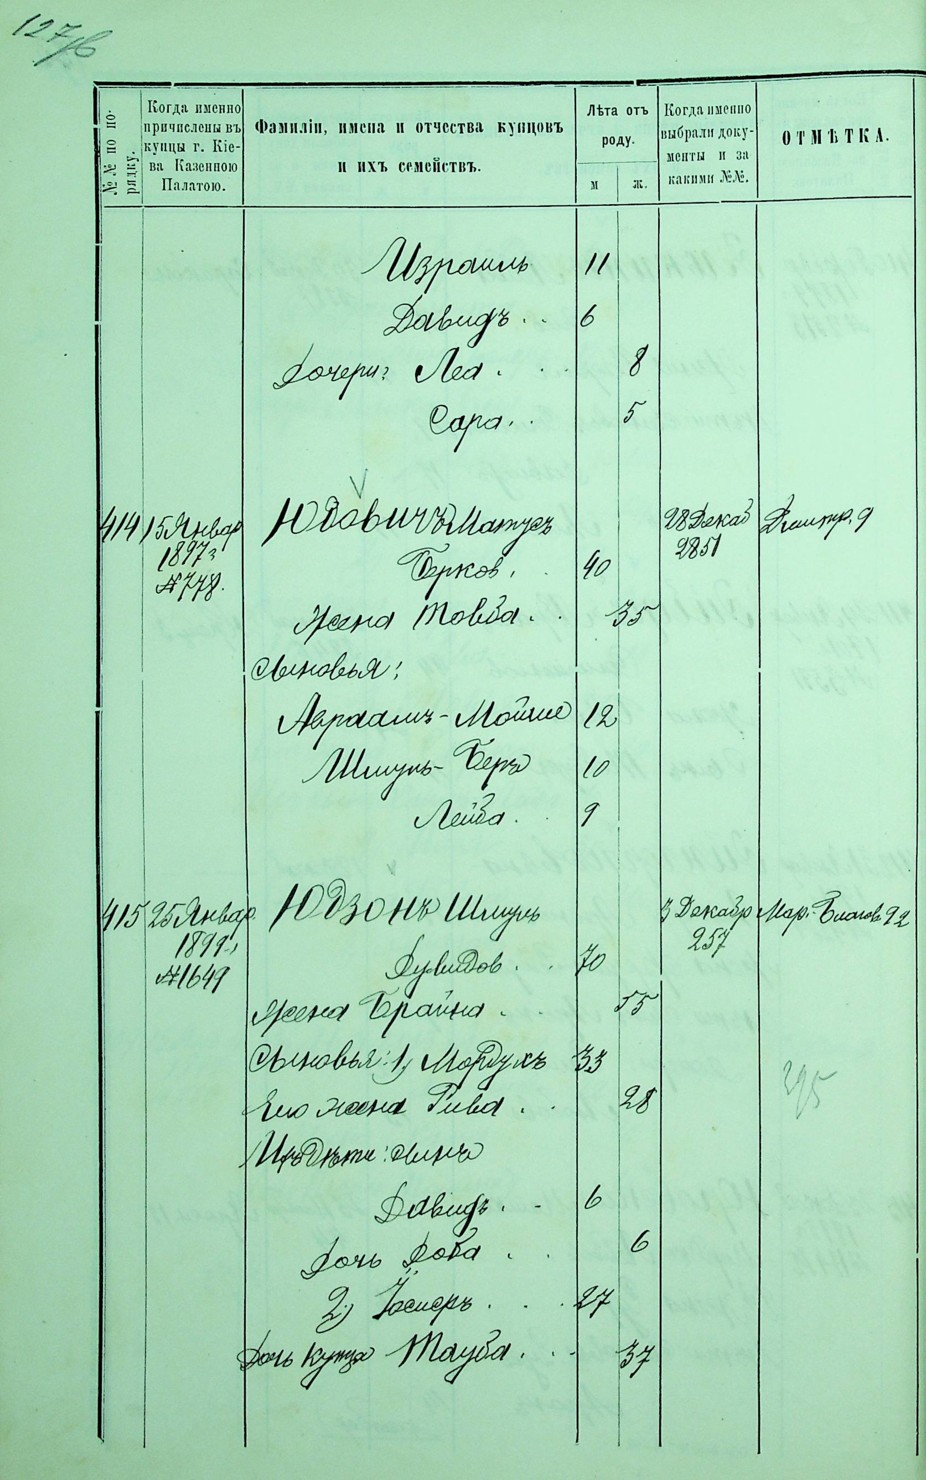 127/б
№№ по по-
рядку.
Когда именно
причислены въ
купцы г. Кіе-
ва Казенною
Палатою.
Фамиліи, имена и отчества купцовъ
и ихъ семействъ.
Лѣта отъ
роду.
м ж.
Когда именно
выбрали доку-
менты и за
какими №№.
ОТМѢТКА.
Израиль 11
Давидъ . . 6
Дочери: Леа . . 8
Сара . . 5
414 15 Январ Юдовичъ Матусъ 28 Декаб Дмитр. 9
1897 г 2851
№ 778. Берков. . 40
Жена Товба . . 35
Сыновья:
Авраамъ-Мойше 12
Шмуль-Беръ 10
Лейба . . 9
415 25 Январ. Юдзонъ Шмуль 3 Декабр Мар.-Благов. 92
1899 г 257
№ 1649 Дувидов . . 70
Жена Брайна . 55
Сыновья: 1) Мордухъ 33
Его жена Рива . . 28
Ихъ дѣти: сынъ
295
Давидъ . - 6
Дочь Доба . . 6
2) Іосифъ . . . 27
Дочь купца Тауба . . . 37